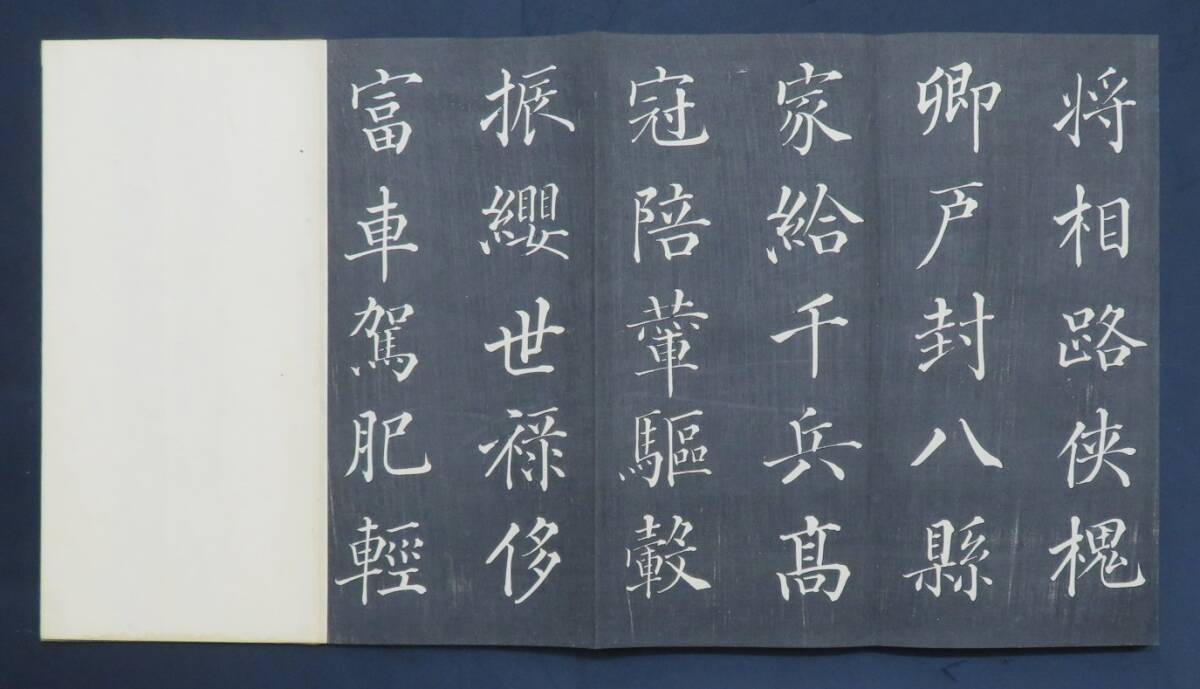 将相路侠槐
卿戸封八縣
家給千兵髙
冠陪輦驅轂
振纓世禄侈
富車駕肥輕